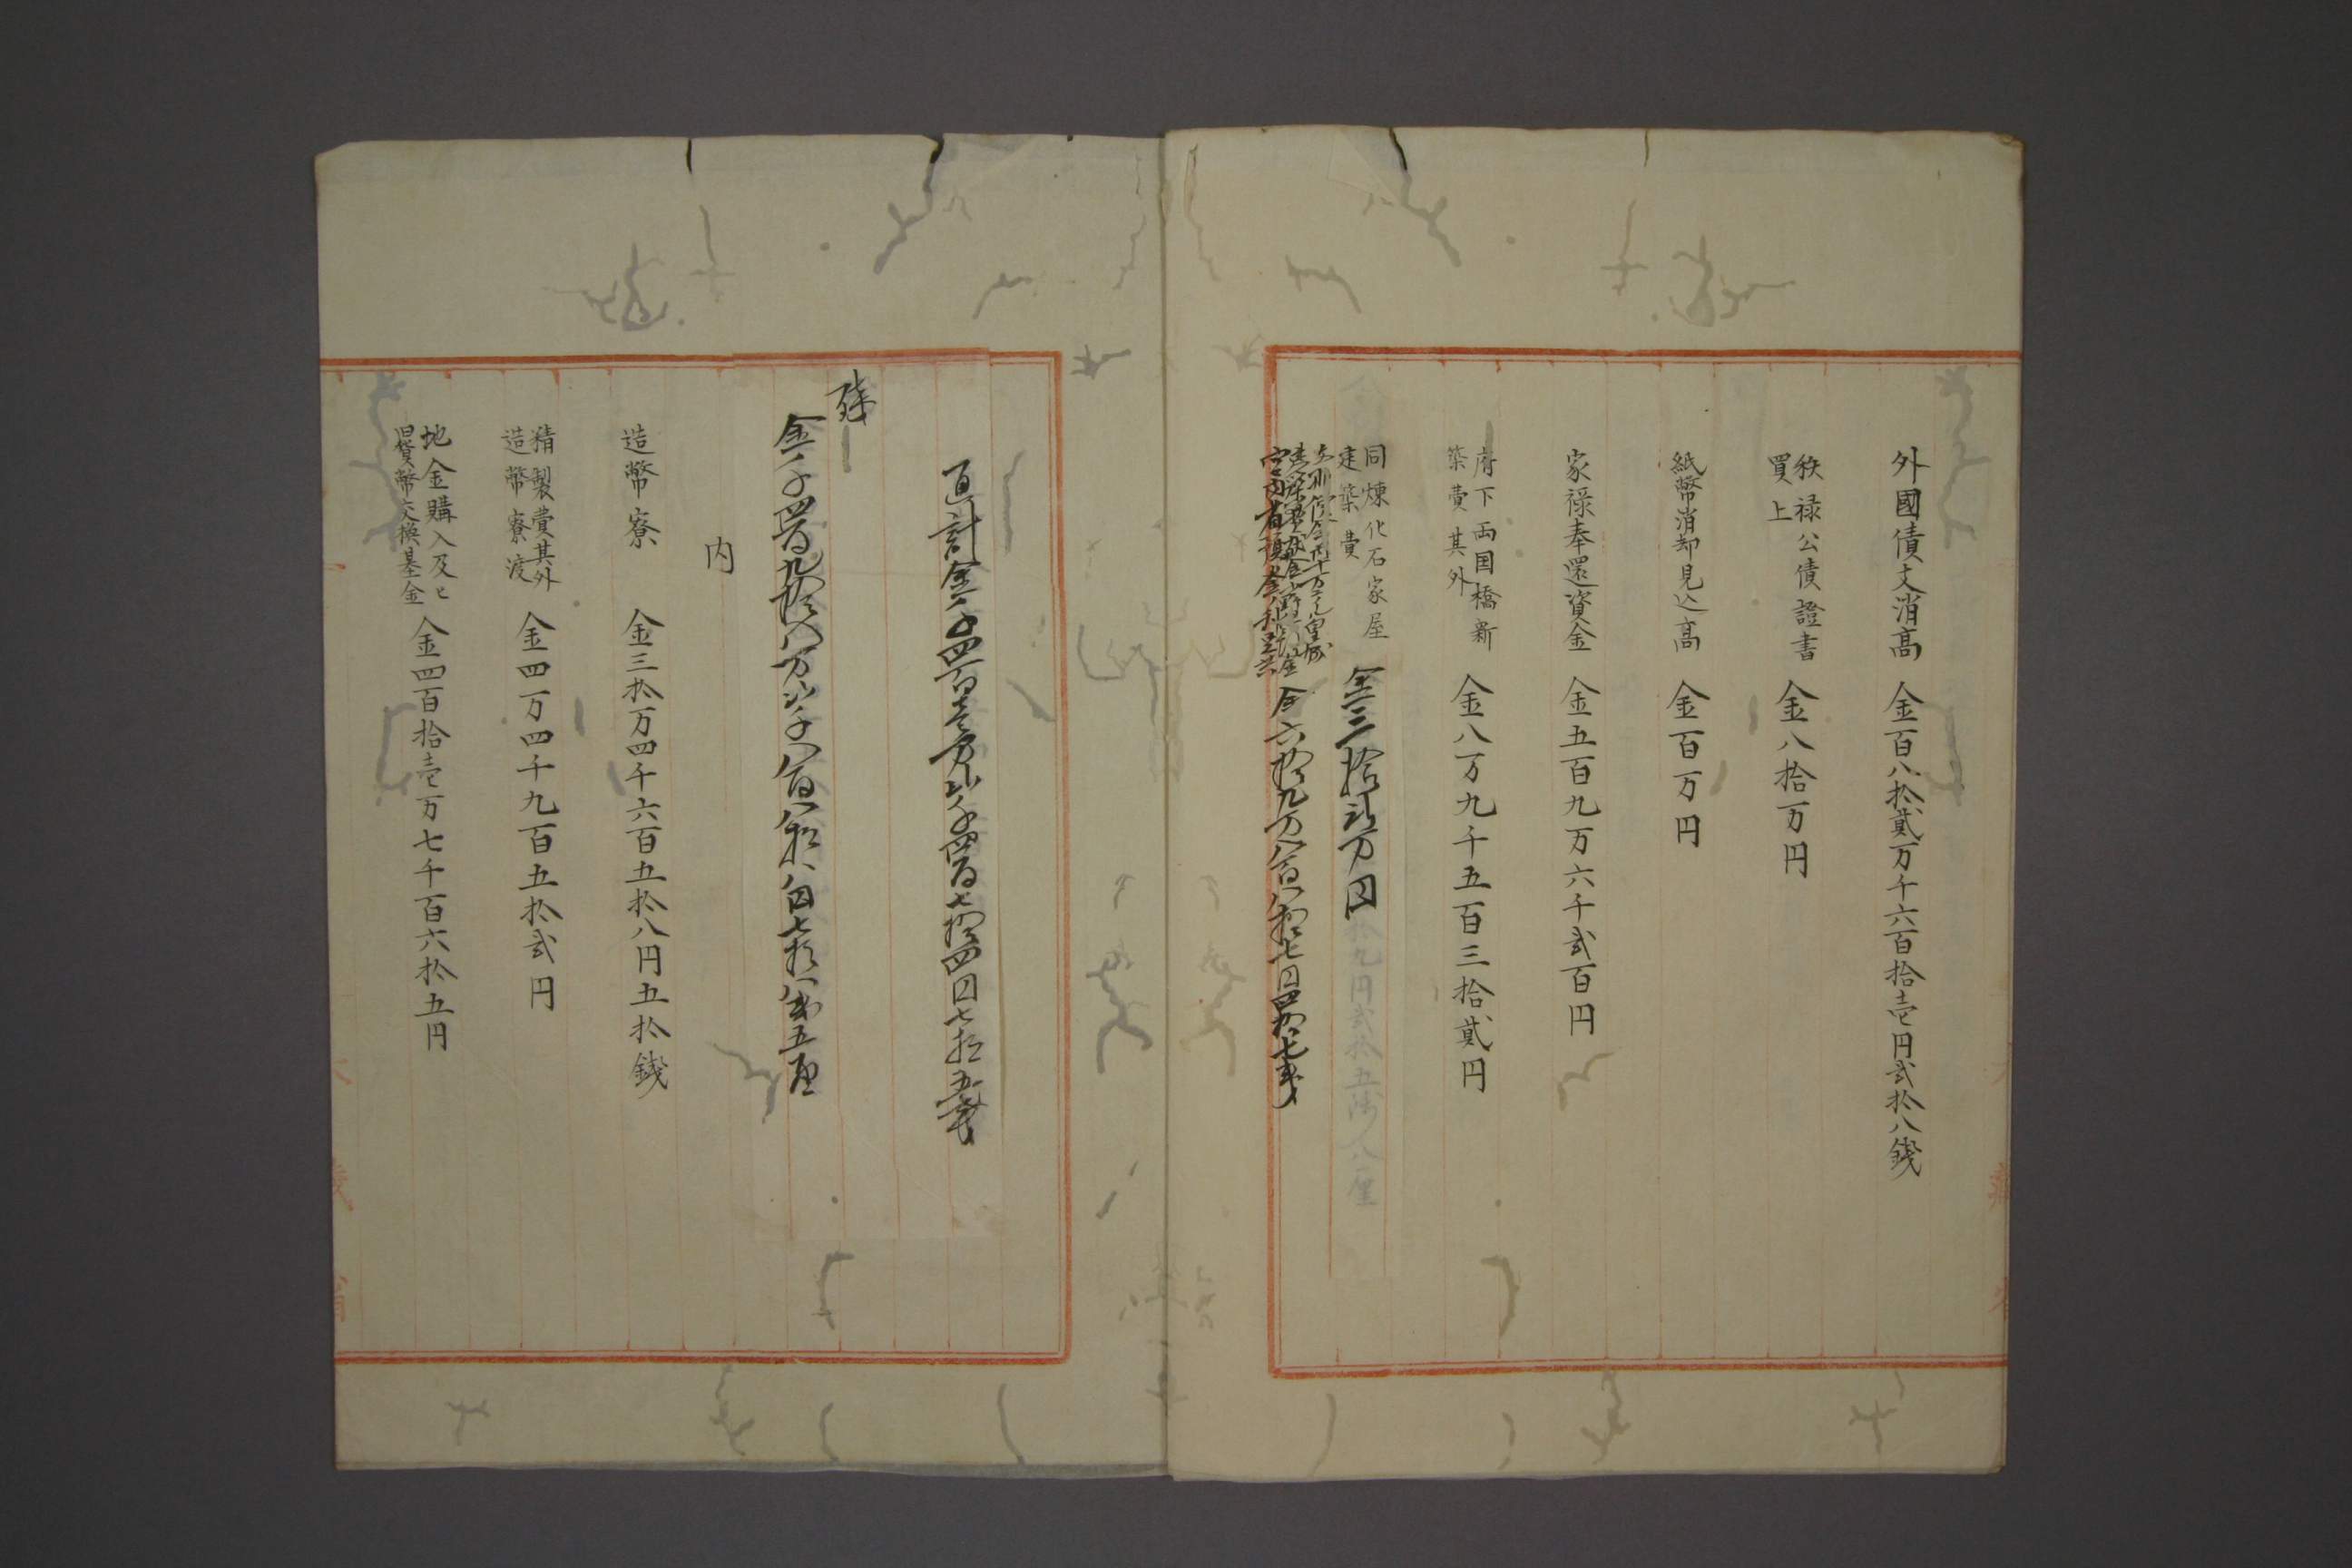 外國債支消高 金百八拾貳万千六百拾壱円弐拾八錢
秩禄公債證書
買上 金八拾万円
紙幣消却見込高 金百万円
家禄奉還資金 金五百九万六千弐百円
府下両国橋新
築費其外 金八万九千五百三拾貳円
同煉化石家屋
建築費 金三拾弐万円
金六拾九万八百八拾七円四拾七錢
直計金千四百壱万
七拾四円七拾五錢
残
金千四百九拾八万
千八百八拾八円七拾八錢五厘
内
造幣寮 金三拾万四千六百五拾八円五拾錢
精製費其外
造幣寮渡 金四万四千九百五拾弐円
地金購入及ヒ
旧貨幣交換基金 金四百拾壱万七千百六拾五円